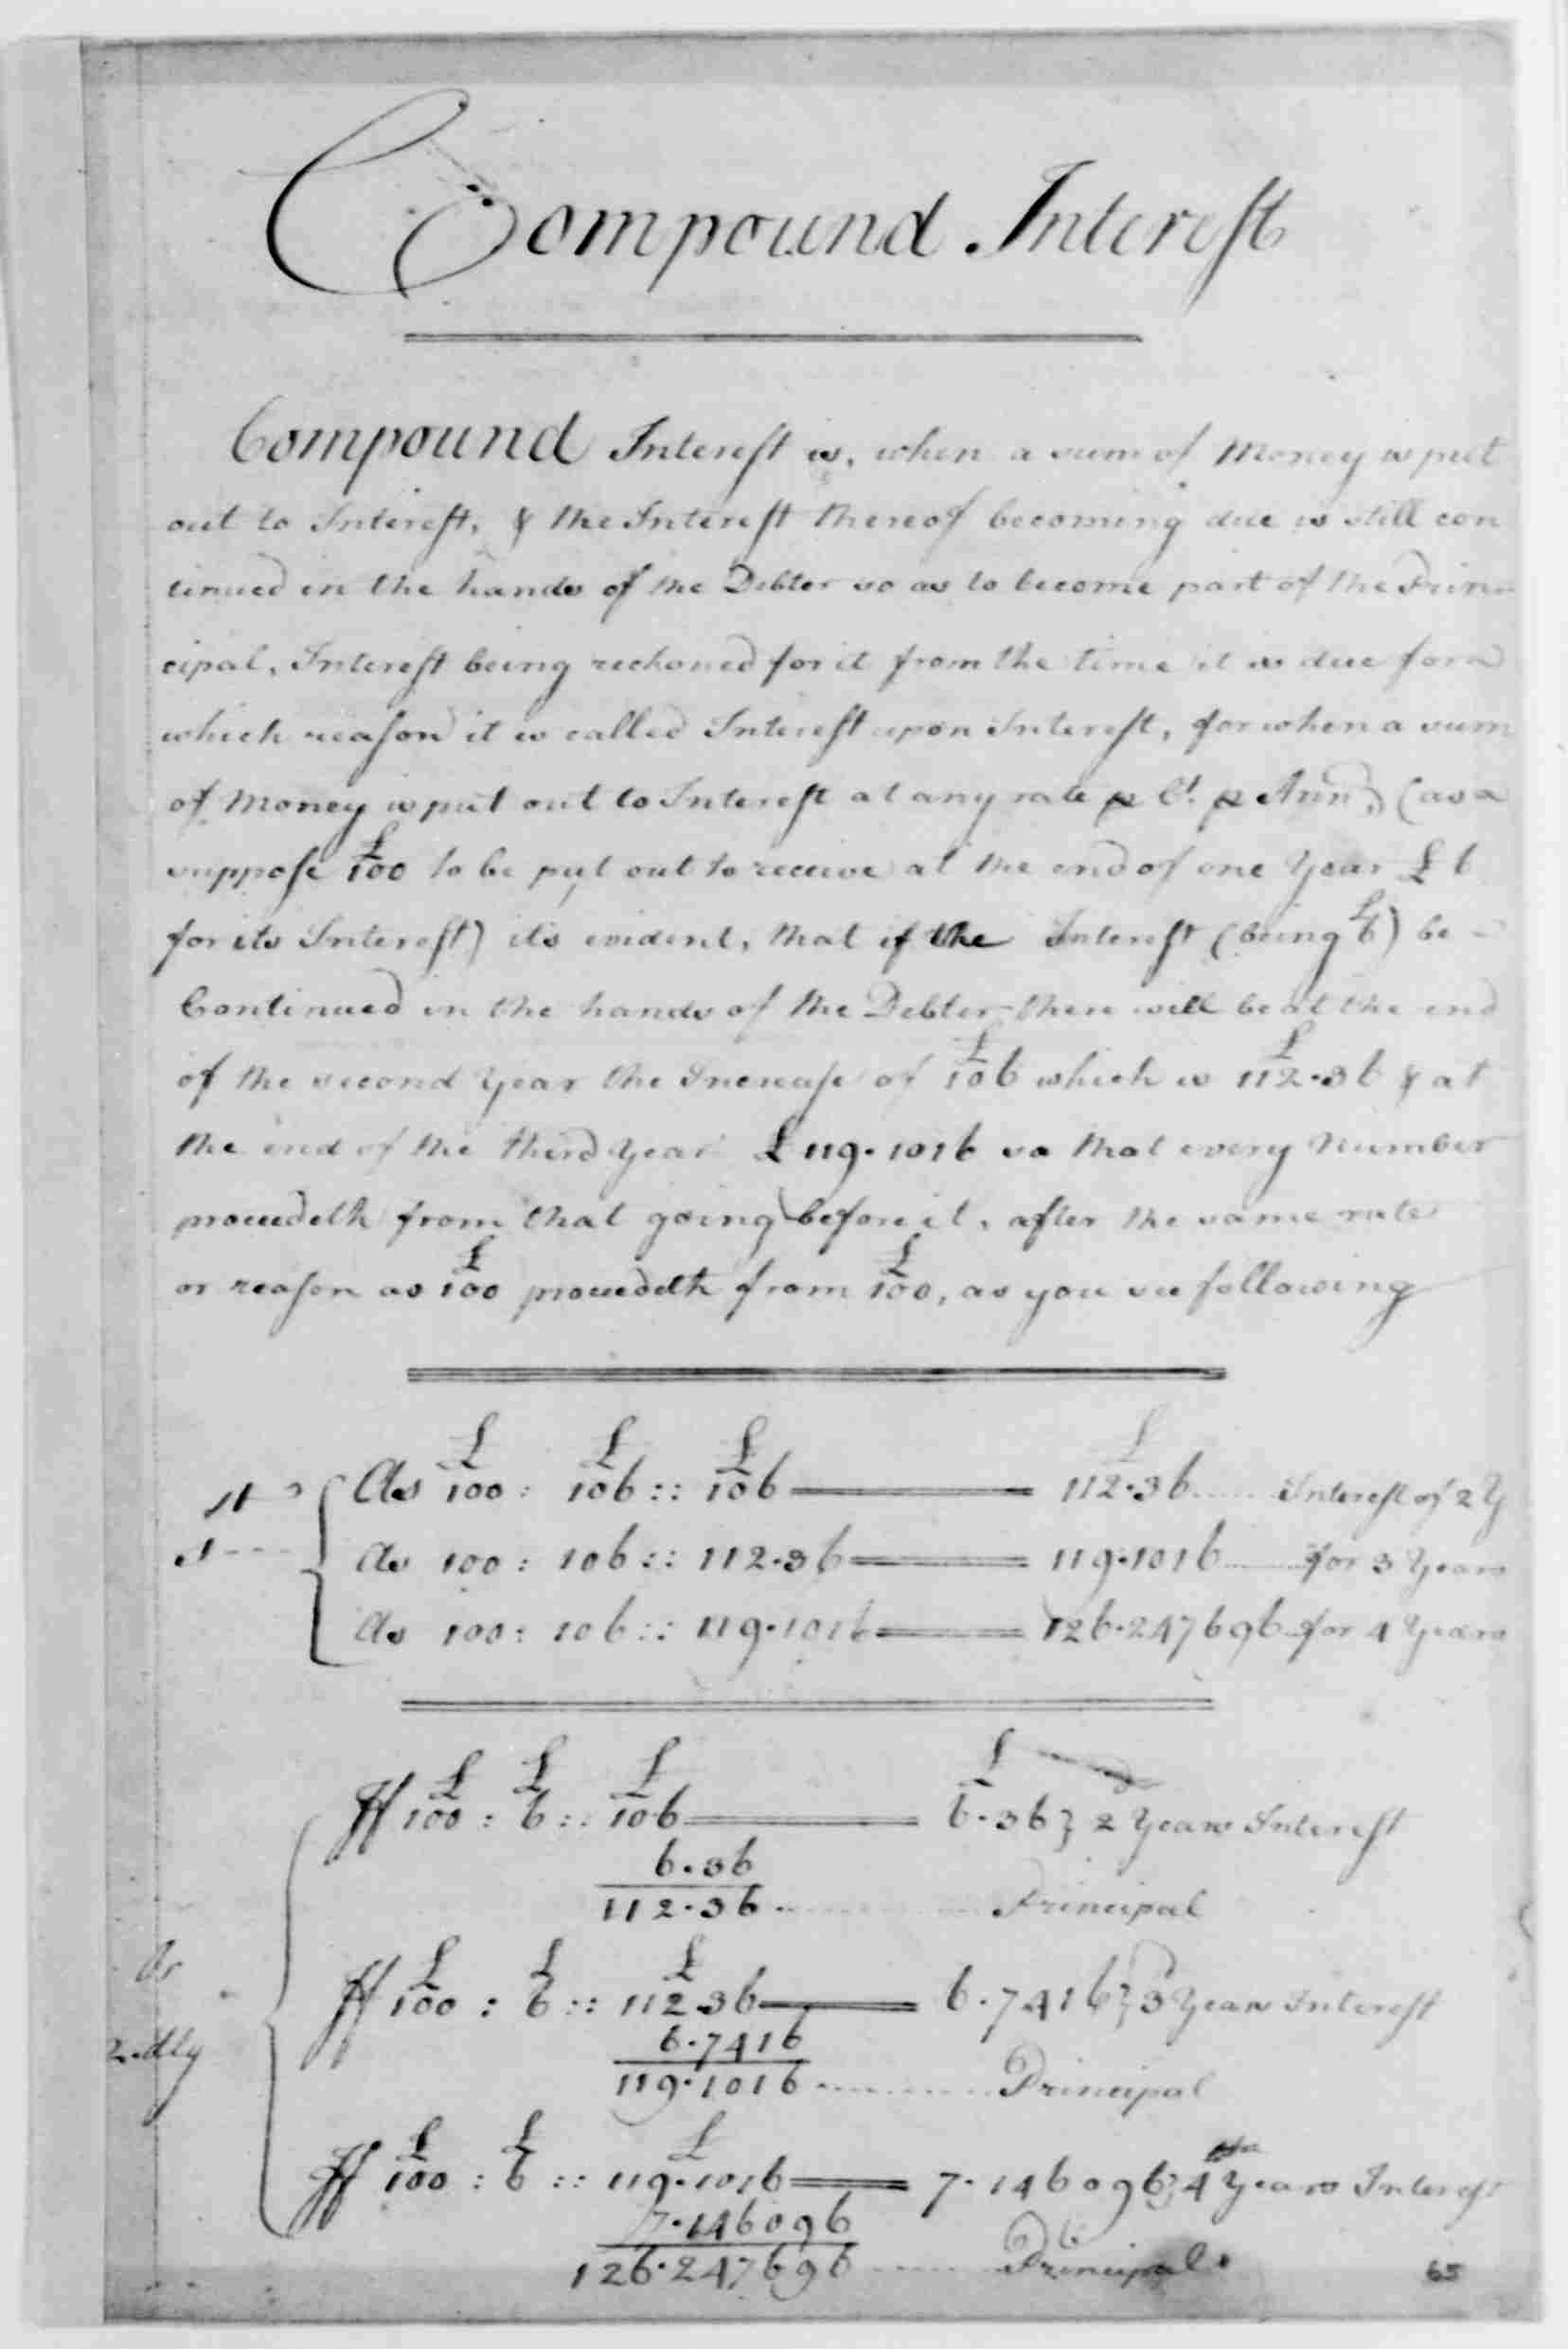 Compound Interest
Compound Interest is, when a sum of Money is put
out to Interest, & the Interest thereof becoming due is still con
tinued in the hands of the Debtor so as to become part of the Prin
cipal, Interest being reckoned for it from the time it is due for
which reason it is called Interest upon Interest, for when a sum
of Money is put out to Interest at any rate p Ct. p Ann, (as
suppose £100 to be put out to receive at the end of one Year £6
for its Interest) its evident, that if the Interest (being £6) be
Continued in the hands of the Debter there will be at the end
of the second Year the Increase of £106 which is £112.36 & at
the end of the third Year £119.1016 so that every Number
proceedeth from that going before it, after the same rate
or reason as £100 proceedeth from £100, as you see following
As £100 : £106 :: £106 = £112.36 Interest of 2 Y
As 100 : 106 :: 112.36 = 119.1016 for 3 Years
As 100 : 106 :: 119.1016 = 126.247696 for 4 Years
If £100 : £6 :: £106 = £6.36} 2 Years Interest
6.36
112.36 Principal
Or
If £100 : £6 :: £112.36 = 6.7416} 3 Years Interest
2.dly
6.7416
119.1016 Principal
If £100 : £6 :: £119.1016 = 7.146096} 4 Years Interest
7.146096
126.247696 Principal
65